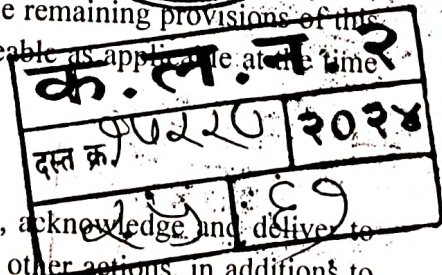 e remaining provisions of this
eable as applicable at the time
क.ल.न.२
दस्त क्र. १५२२८ २०२४
२५ ६१
, acknowledge and deliver to
other actions, in additions to